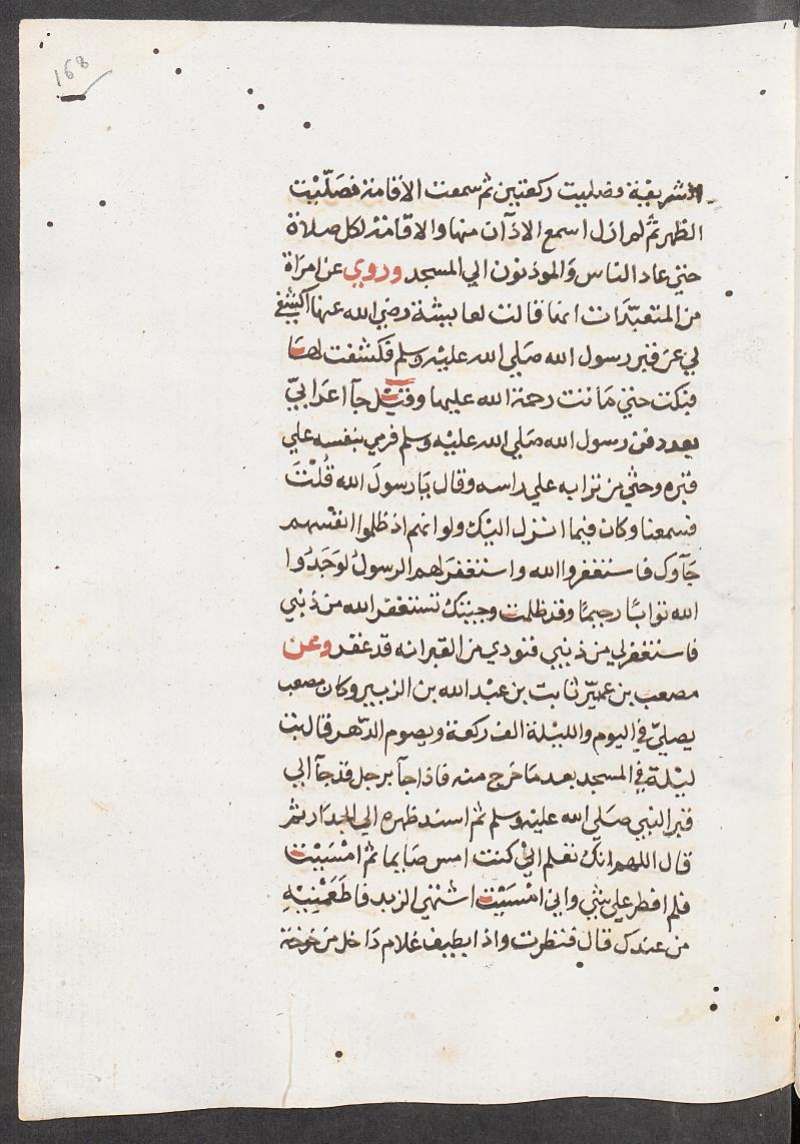 168
الشريفة وصليت ركعتين ثم سمعت الاقامة فصَلّيْت
الظهر ثم لم ازل اسمع الاذآن منها والاقامة لكل صلاة
حتي عاد الناس وَالموذنون الي المسجد وروي عن امرَاة
من المتعبّدَات انها قالت لعايشة رضي الله عنها اكشفي
لي عن قبر رسول الله صَلي الله عليْه وسلم فكشفت لهَا
فبَكت حتي مَاتت رحمة الله عليها وقيْل جآ اعرَابيّ
بعد دفن رسول الله صَلي الله عليْه وسلم فرمي بنفسه علي
قبره وحثي من ترابه علي راسه وقال يَا رسولَ الله قُلْتَ
فسمعنا وكان فيما انزل اليْك ولو انهم اذ ظلموا انفْسهم
جَآوك فاستغفروا الله واستغفرَ لهم الرسولُ لوَجَدُوا
الله توابًا رحيمًا وقد ظلمت وجيتك تستغفر الله من ذنبي
فاستغفر لي من ذنبي فنودي من القبر انه قد غفر وعن
مصعب بن عميّر ثابت بن عبْد الله بن الزبير وكان مصعب
يصليّ في اليوم والليْلة الف ركعة ويصوم الدّهر قال بت
ليْلة في المسجد بعد مَا خرج منه فاذا جآ برجل قد جآ الي
قبر النبي صَلي الله عليْه وسلم ثم اسند ظهره الي الجدَار ثم
قال اللهم انك تعلم اني كنت امس صَايما ثم امْسَيْت
فلم افطر علي شي واني امْسَيْت اشتهي الزبد فاطَعَمْنِيْهِ
من عندك قال فنظرت واذا بطيف غلام دَاخل من خوخة